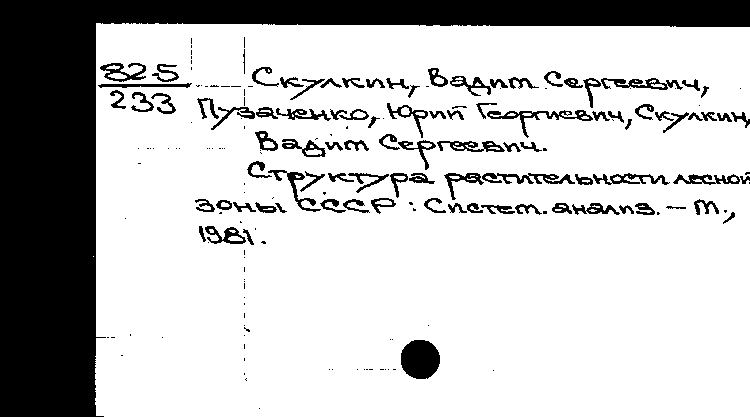 82-5
233
Скулкин, Вадим Сергеевич,
Пузаченко, Юрий Георгиевич, Скулкин,
Вадим Сергеевич.
Структура растительности лесной
зоны СССР : Систем. анализ. - М.,
1981.